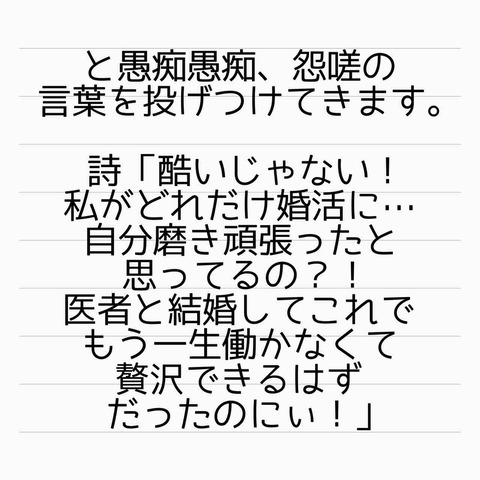 と愚痴愚痴、怨嗟の
言葉を投げつけてきます。
詩「酷いじゃない！
私がどれだけ婚活に…
自分磨き頑張ったと
思ってるの？！
医者と結婚してこれで
もう一生働かなくて
贅沢できるはず
だったのにぃ！」